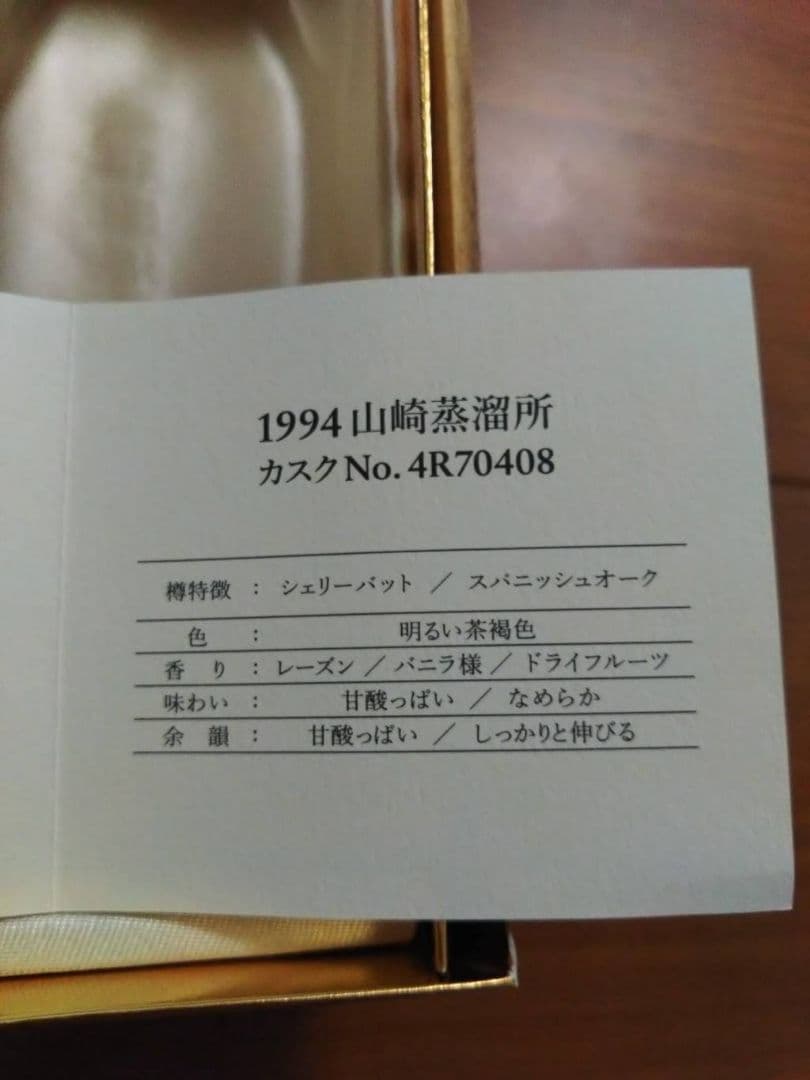 1994 山崎蒸溜所
カスクNo. 4R70408
樽特徴 : シェリーバット ／ スパニッシュオーク
色 : 明るい茶褐色
香り : レーズン ／ バニラ様 ／ ドライフルーツ
味わい : 甘酸っぱい ／ なめらか
余韻 : 甘酸っぱい ／ しっかりと伸びる